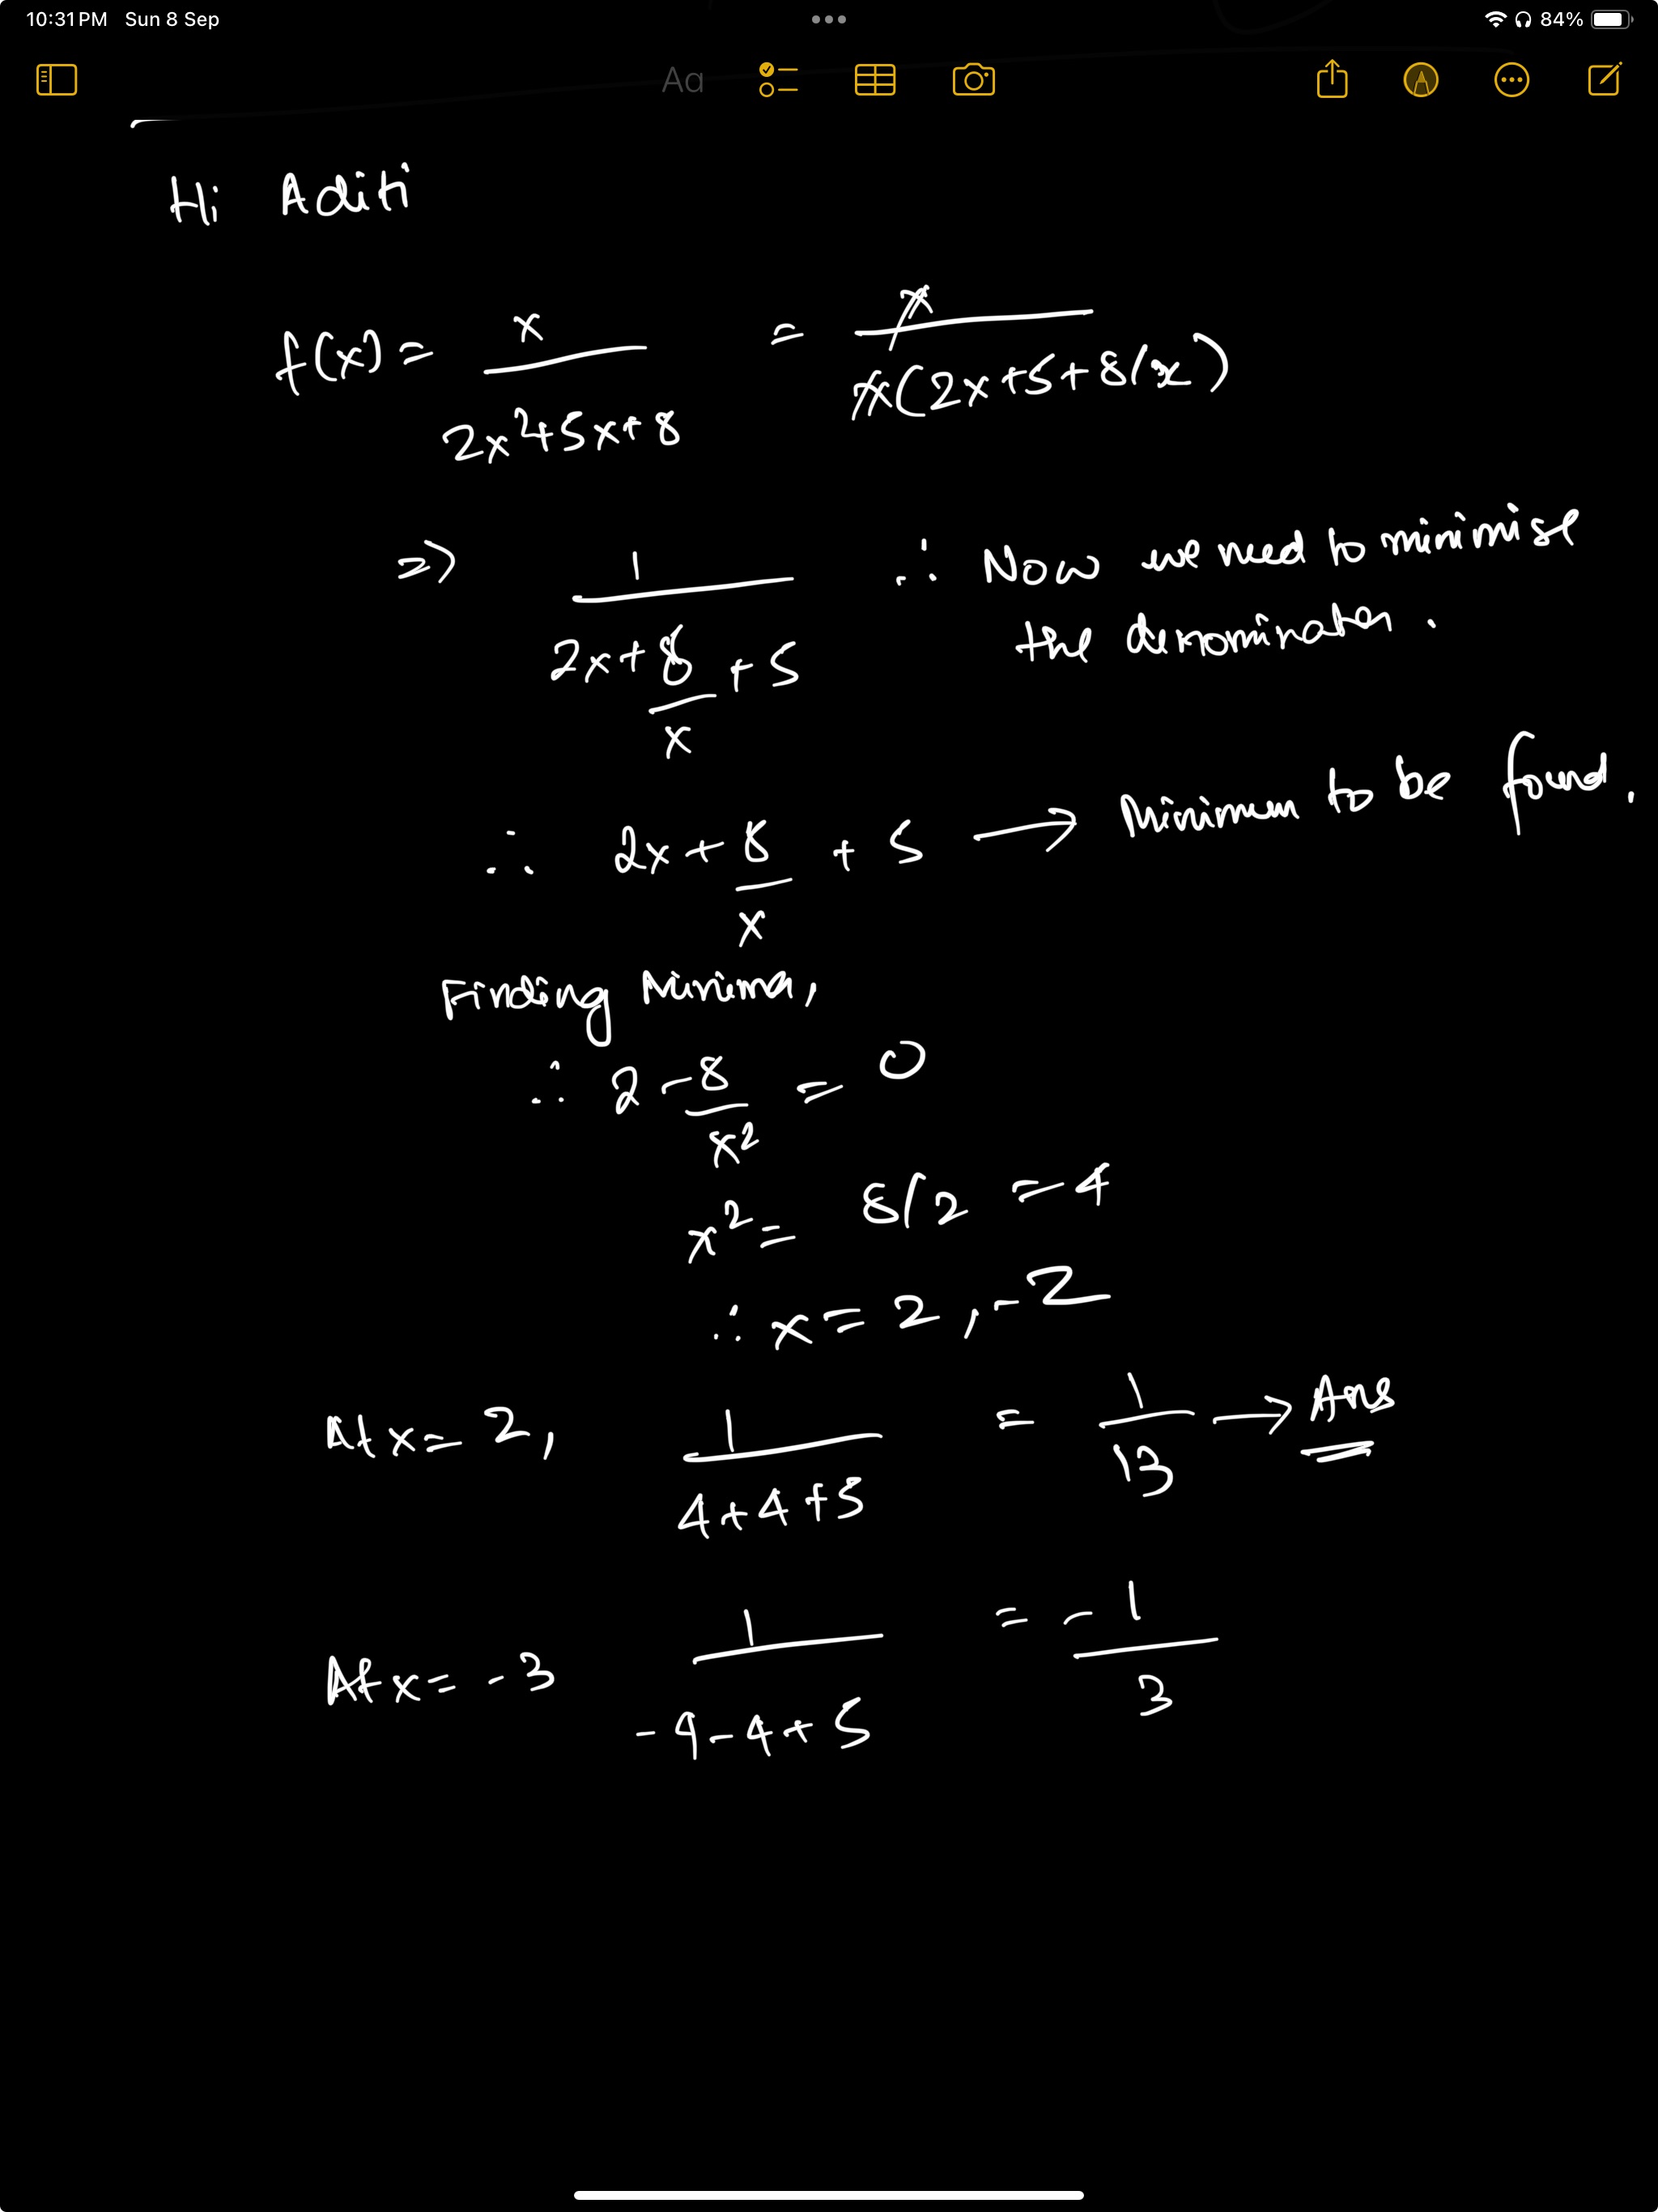 10:31 PM Sun 8 Sep 84%
Aa
Hi Aditi
f(x) = x / 2x²+5x+8 = x / x(2x+5+8/x)
=> 1 / 2x + 8/x + 5 ∴ Now we need to minimise
the denominator.
∴ 2x + 8/x + 5 → Minimum to be found.
Finding Minima,
∴ 2 - 8/x² = 0
x² = 8/2 = 4
∴ x = 2, -2
At x = 2, 1 / 4+4+5 = 1/13 → Ans
At x = -3 1 / -9-4+5 = -1/3